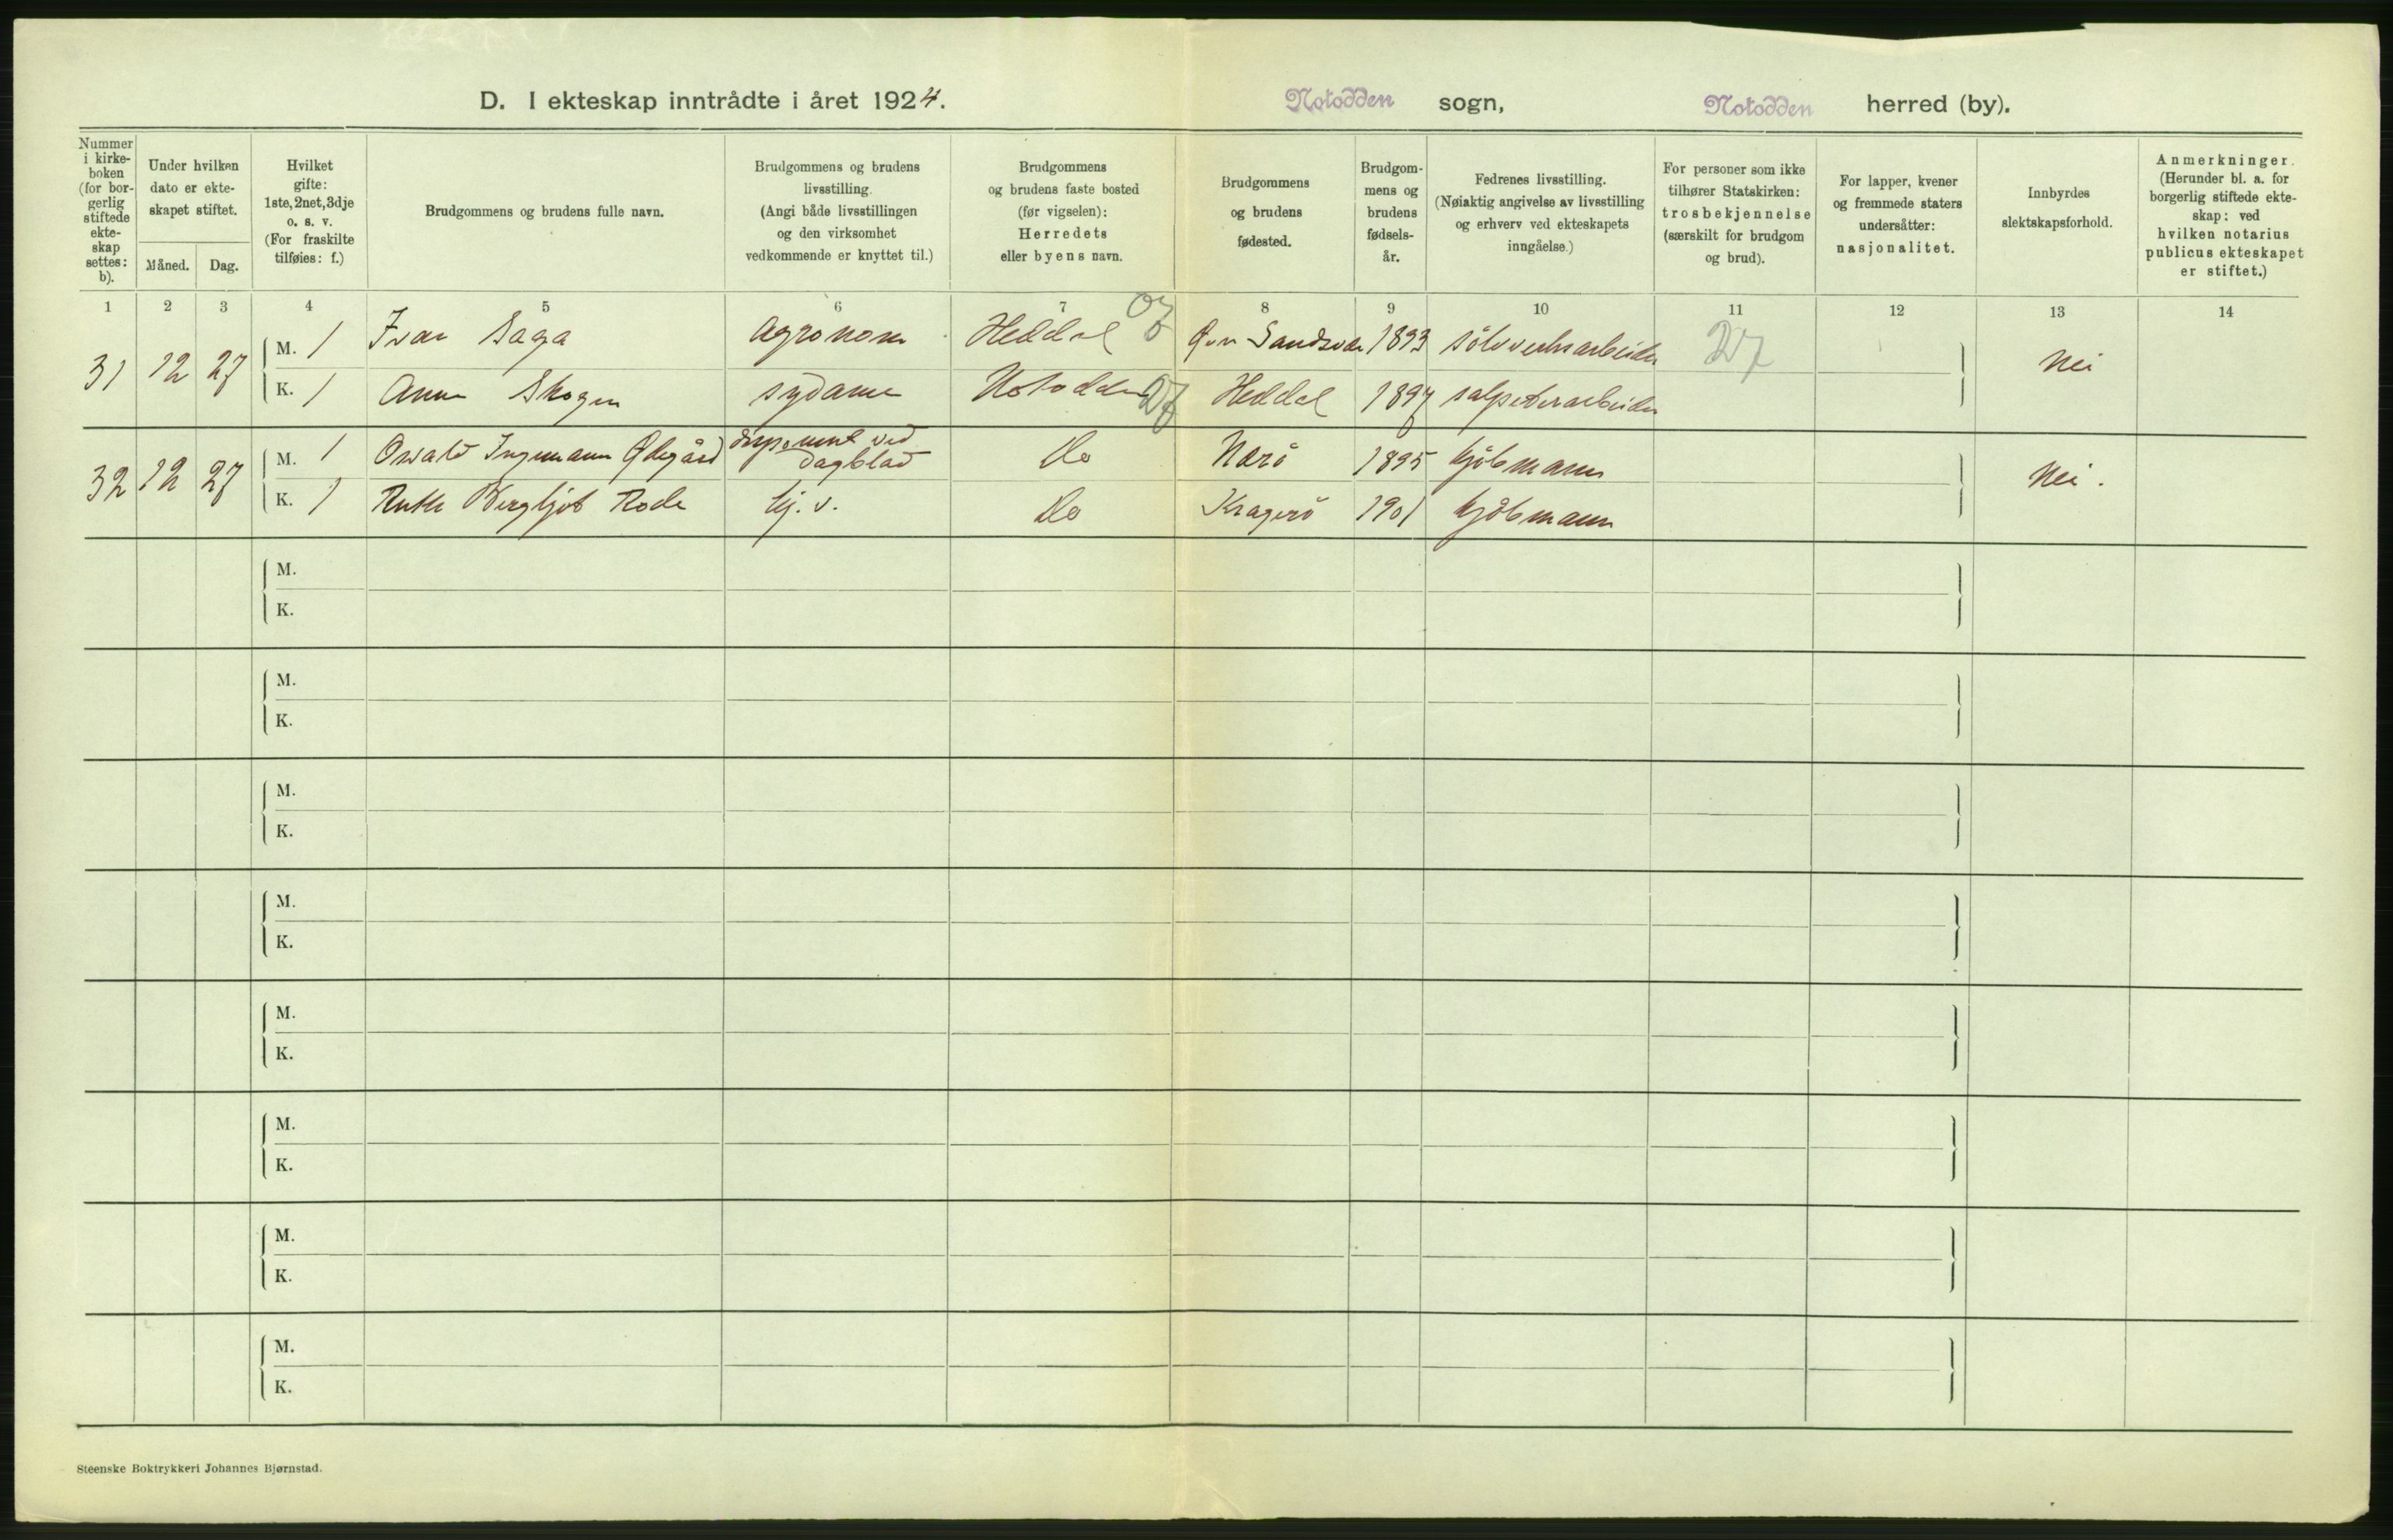 D. I ekteskap inntrådte i året 1924. Notodden sogn, Notodden herred (by).
Nummer i kirke- boken (for bor- gerlig stiftede ekte- skap settes: b).
Under hvilken dato er ekte- skapet stiftet.
Måned. Dag.
Hvilket gifte: 1ste, 2net, 3dje o. s. v. (For fraskilte tilføies: f.)
Brudgommens og brudens fulle navn.
Brudgommens og brudens livsstilling. (Angi både livsstillingen og den virksomhet vedkommende er knyttet til.)
Brudgommens og brudens faste bosted (før vigselen): Herredets eller byens navn.
Brudgommens og brudens fødested.
Brudgom- mens og brudens fødsels- år.
Fedrenes livsstilling. (Nøiaktig angivelse av livsstilling og erhverv ved ekteskapets inngåelse.)
For personer som ikke tilhører Statskirken: trosbekjennelse (særskilt for brudgom og brud).
For lapper, kvener og fremmede staters undersåtter: nasjonalitet.
Innbyrdes slektskapsforhold.
Anmerkninger. (Herunder bl. a. for borgerlig stiftede ekte- skap: ved hvilken notarius publicus ekteskapet er stiftet.)
1 2 3 4 5 6 7 8 9 10 11 12 13 14
31 12 27 M. 1 Ivar Saga Agronom Heddal Øvr Sandsvær 1893 sølvverksarbeider 27 Nei
K. 1 Anne Skogen sydame Notodden 27 Heddal 1897 salpeterarbeider
32 12 27 M. 1 Osvald Ingemann Ødegård disponent ved dagblad Do Nærø 1895 kjøbmann Nei.
K. 1 Ruth Bergljot Rode hj. v. Do Kragerø 1901 kjøbmann
M.
K.
M.
K.
M.
K.
M.
K.
M.
K.
M.
K.
M.
K.
M.
K.
Steenske Boktrykkeri Johannes Bjørnstad.